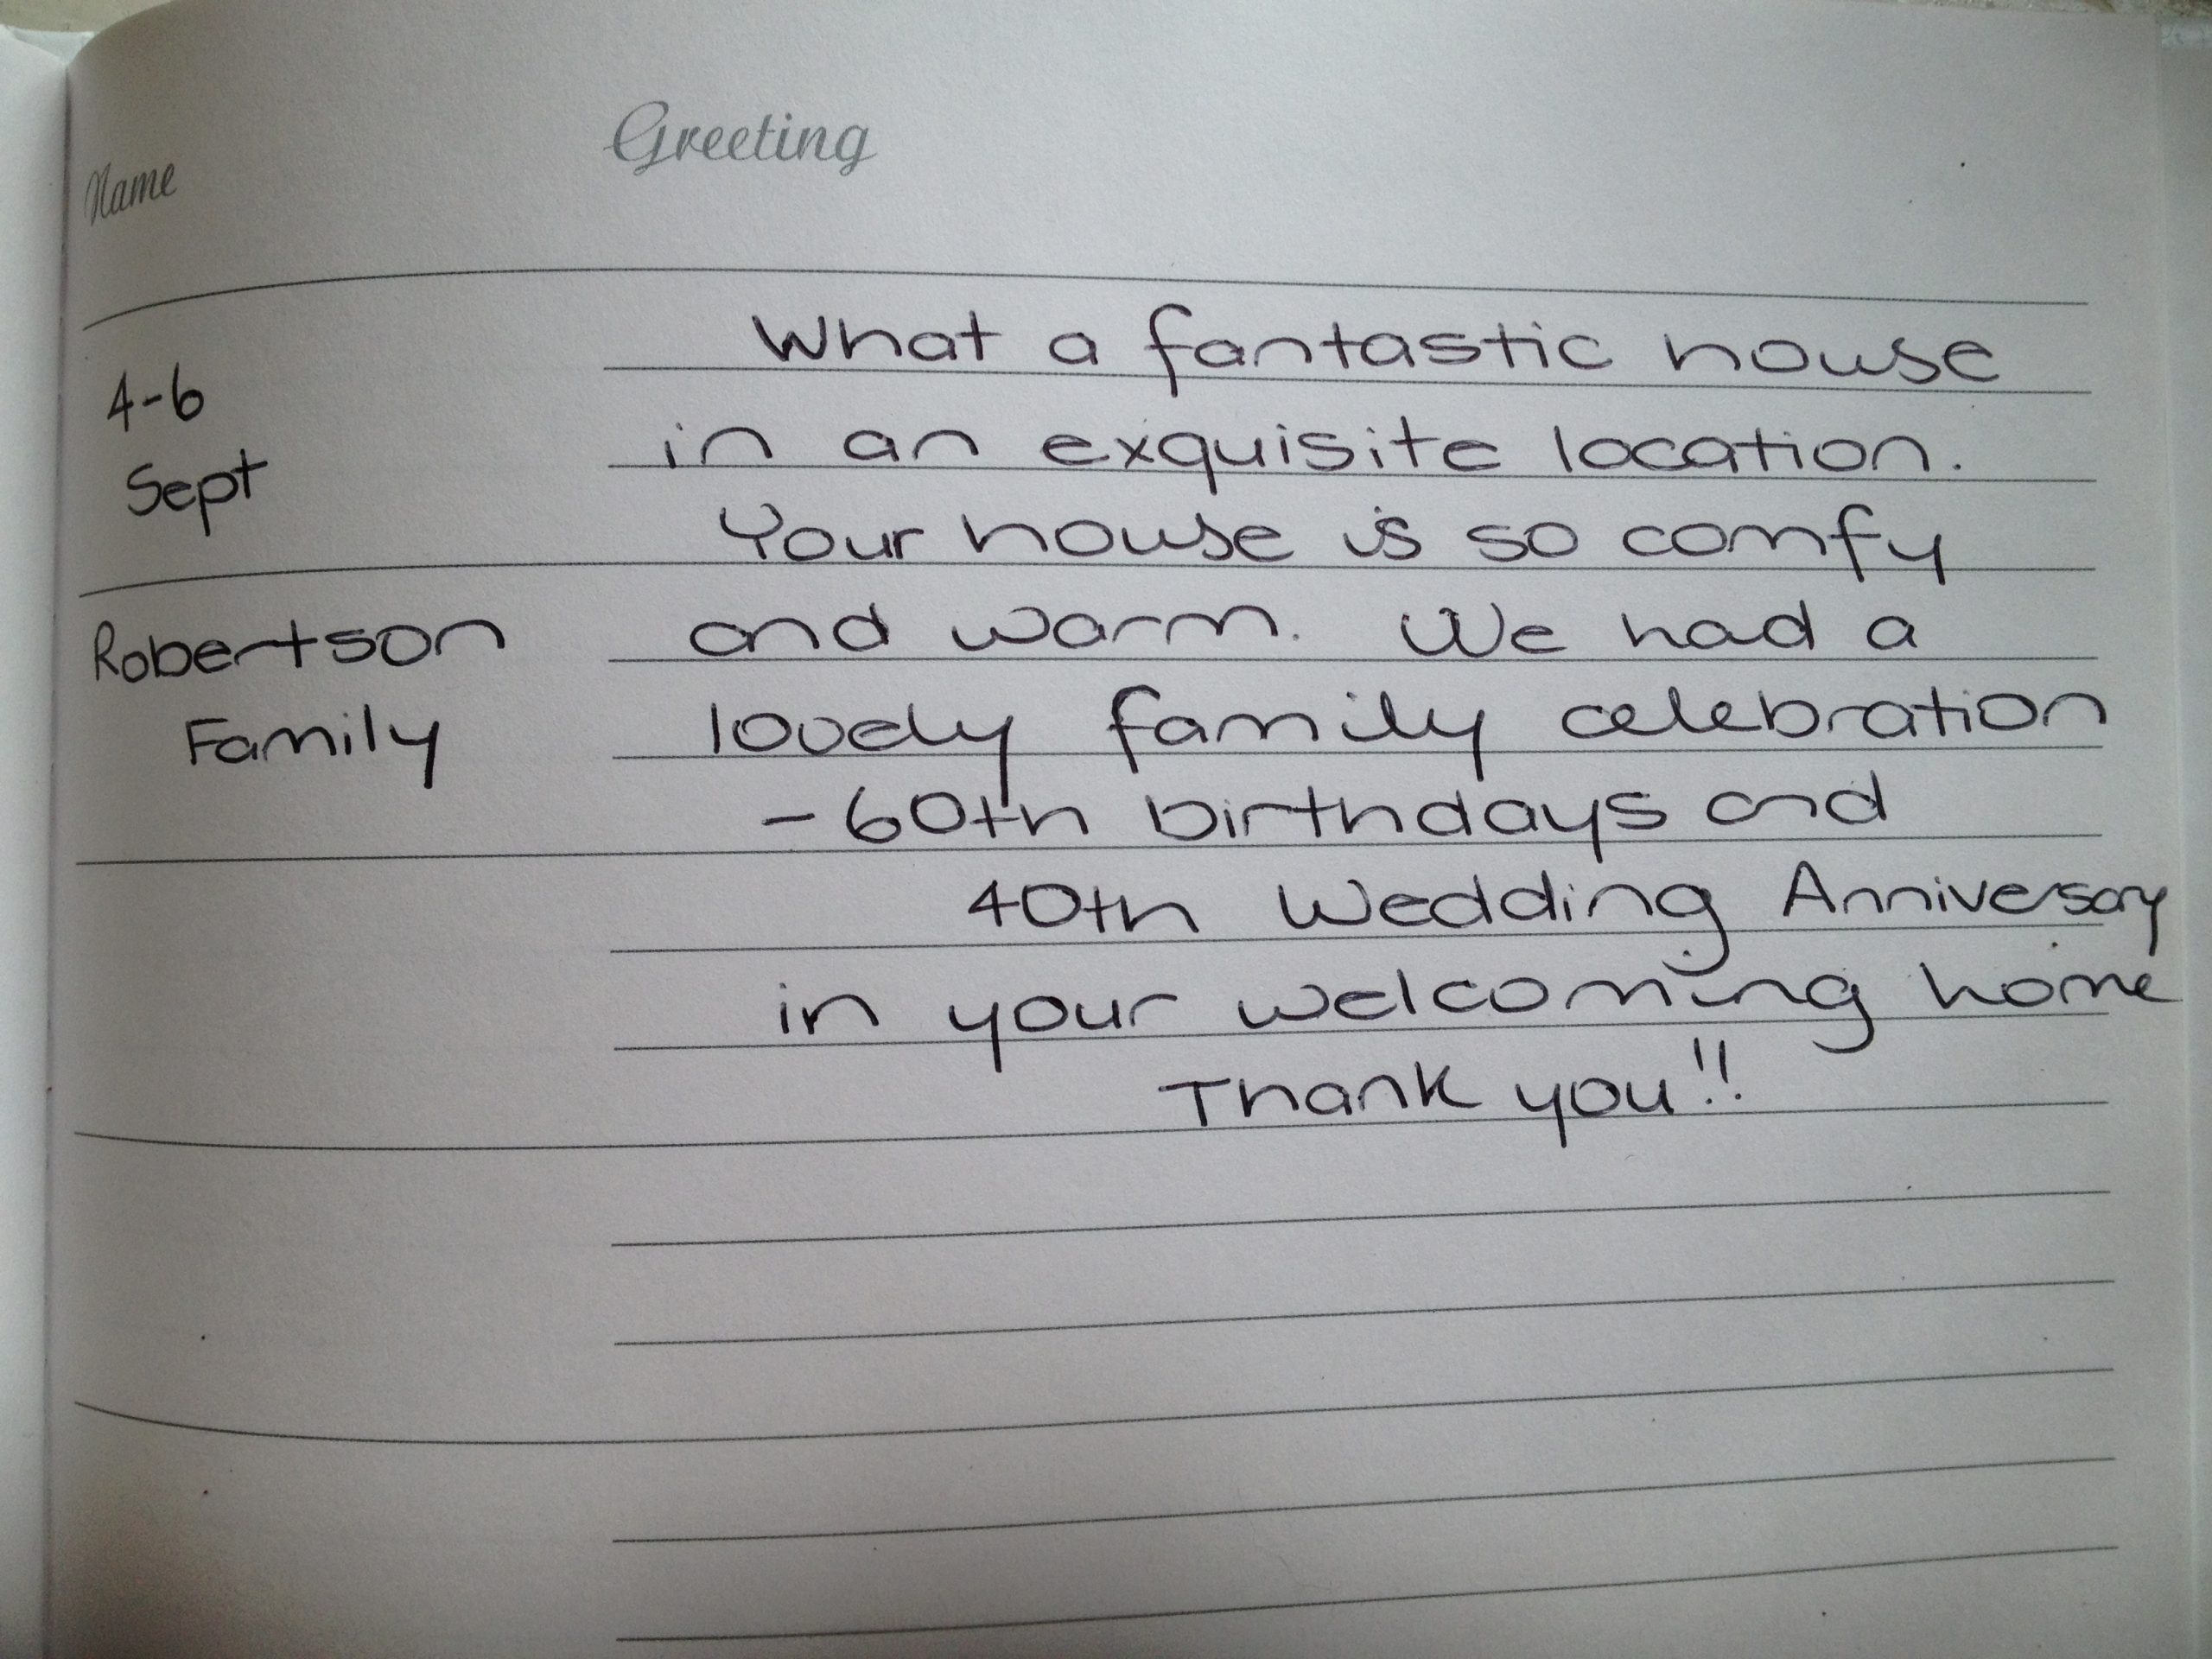 Name Greeting
4-6
Sept
Robertson
Family
What a fantastic house
in an exquisite location.
Your house is so comfy
and warm. We had a
lovely family celebration
- 60th birthdays and
40th Wedding Anniversary
in your welcoming home
Thank you!!